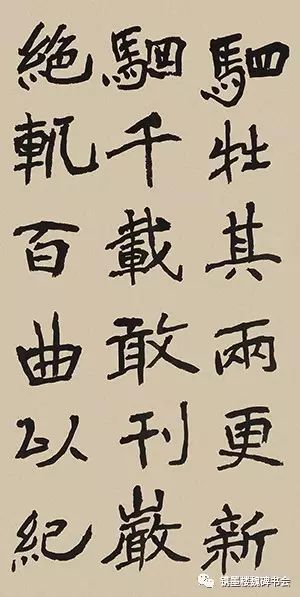 駟牡其兩更新
駟千載敢刊嚴
絕軌百曲以紀
筑墨楼魏碑书会